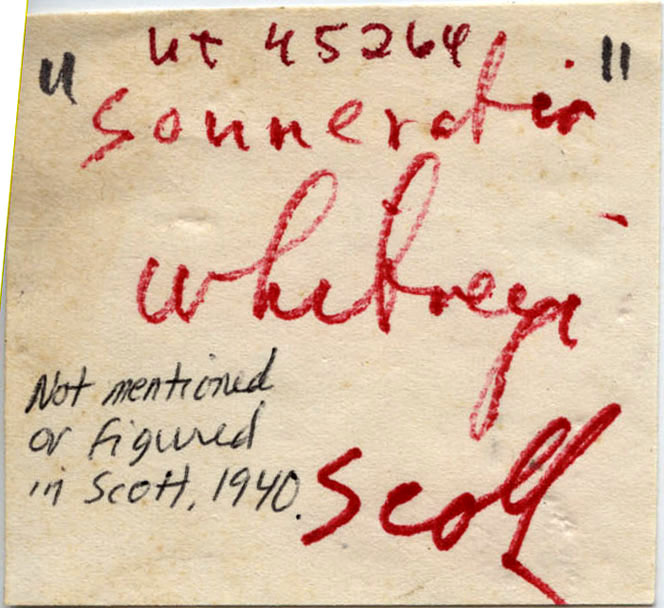 UT 45264
"Sonneratia"
whitneyi
Scott
Not mentioned
or figured
in Scott, 1940.